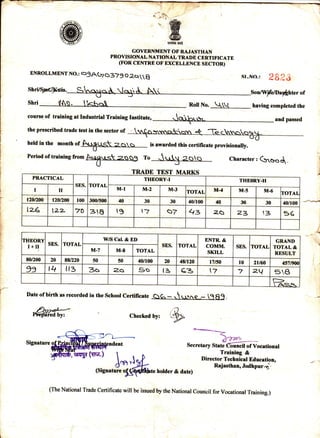 GOVERNMENT OF RAJASTHAN
PROVISIONAL NATIONAL TRADE CERTIFICATE
(FOR CENTRE OF EXCELLENCE SECTOR)
ENROLLMENT NO.: 09AG037902018
SI.NO.: 2823
Shri/Smt./Kum. Shayad Vajid Ali Son/Wife/Daughter of
Shri Md. Ikbal Roll No. 414 having completed the
course of training at Industrial Training Institute, Jaipur and passed
the prescribed trade test in the sector of Information & Technology
held in the month of August 2010 is awarded this certificate provisionally.
Period of training from August 2009 To July 2010 Character : Good.
TRADE TEST MARKS
PRACTICAL SES. TOTAL THEORY-I THEORY-II
I II M-1 M-2 M-3 TOTAL M-4 M-5 M-6 TOTAL
120/200 120/200 100 300/500 40 30 30 40/100 40 30 30 40/100
126 122 70 318 19 17 07 43 20 23 13 56
THEORY I + II SES. TOTAL W/S Cal. & ED SES. TOTAL ENTR. & COMM. SKILL SES. TOTAL GRAND TOTAL & RESULT
M-7 M-8 TOTAL
80/200 20 88/220 50 50 40/100 20 48/120 17/50 10 21/60 457/900
99 14 113 30 20 50 13 63 17 7 24 518
Pass
Date of birth as recorded in the School Certificate 06-June-1989
Prepared by: Checked by:
Signature of Principal/Superintendent
(Signature of Certificate holder & date)
Secretary State Council of Vocational
Training &
Director Technical Education,
Rajasthan, Jodhpur
(The National Trade Certificate will be issued by the National Council for Vocational Training.)